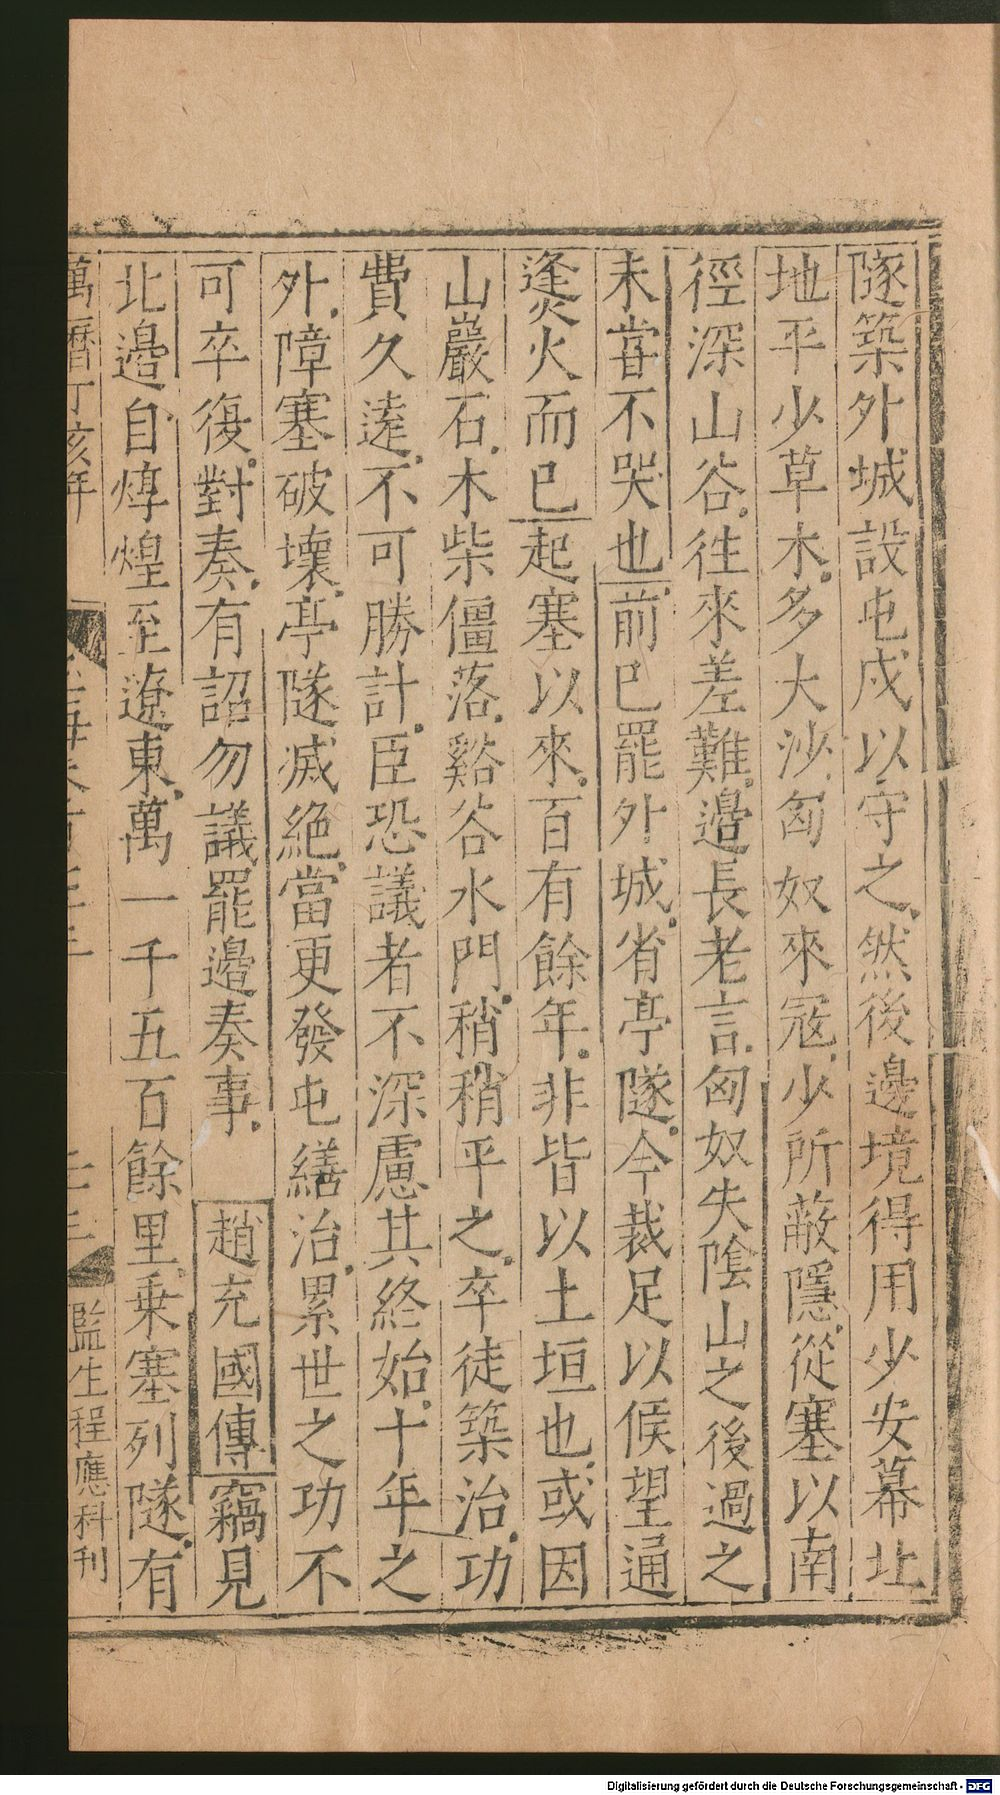 隧築外城設屯戍以守之然後邊境得用少安幕北
地平少草木多大沙匈奴來寇少所蔽隱從塞以南
徑深山谷往來差難邊長老言匈奴失陰山之後過之
未嘗不哭也前已罷外城省亭隧今裁足以候望通
㷭火而已起塞以來百有餘年非皆以土垣也或因
山巖石木柴僵落谿谷水門稍稍平之卒徒築治功
費久遠不可勝計臣恐議者不深慮其終始十年之
外障塞破壞亭隧滅絕當更發屯繕治累世之功不
可卒復對奏有詔勿議罷邊奏事 趙充國傳竊見
北邊自燉煌至遼東萬一千五百餘里乗塞列隧有
萬曆丁亥年
監生程應科刋
Digitalisierung gefördert durch die Deutsche Forschungsgemeinschaft - DFG